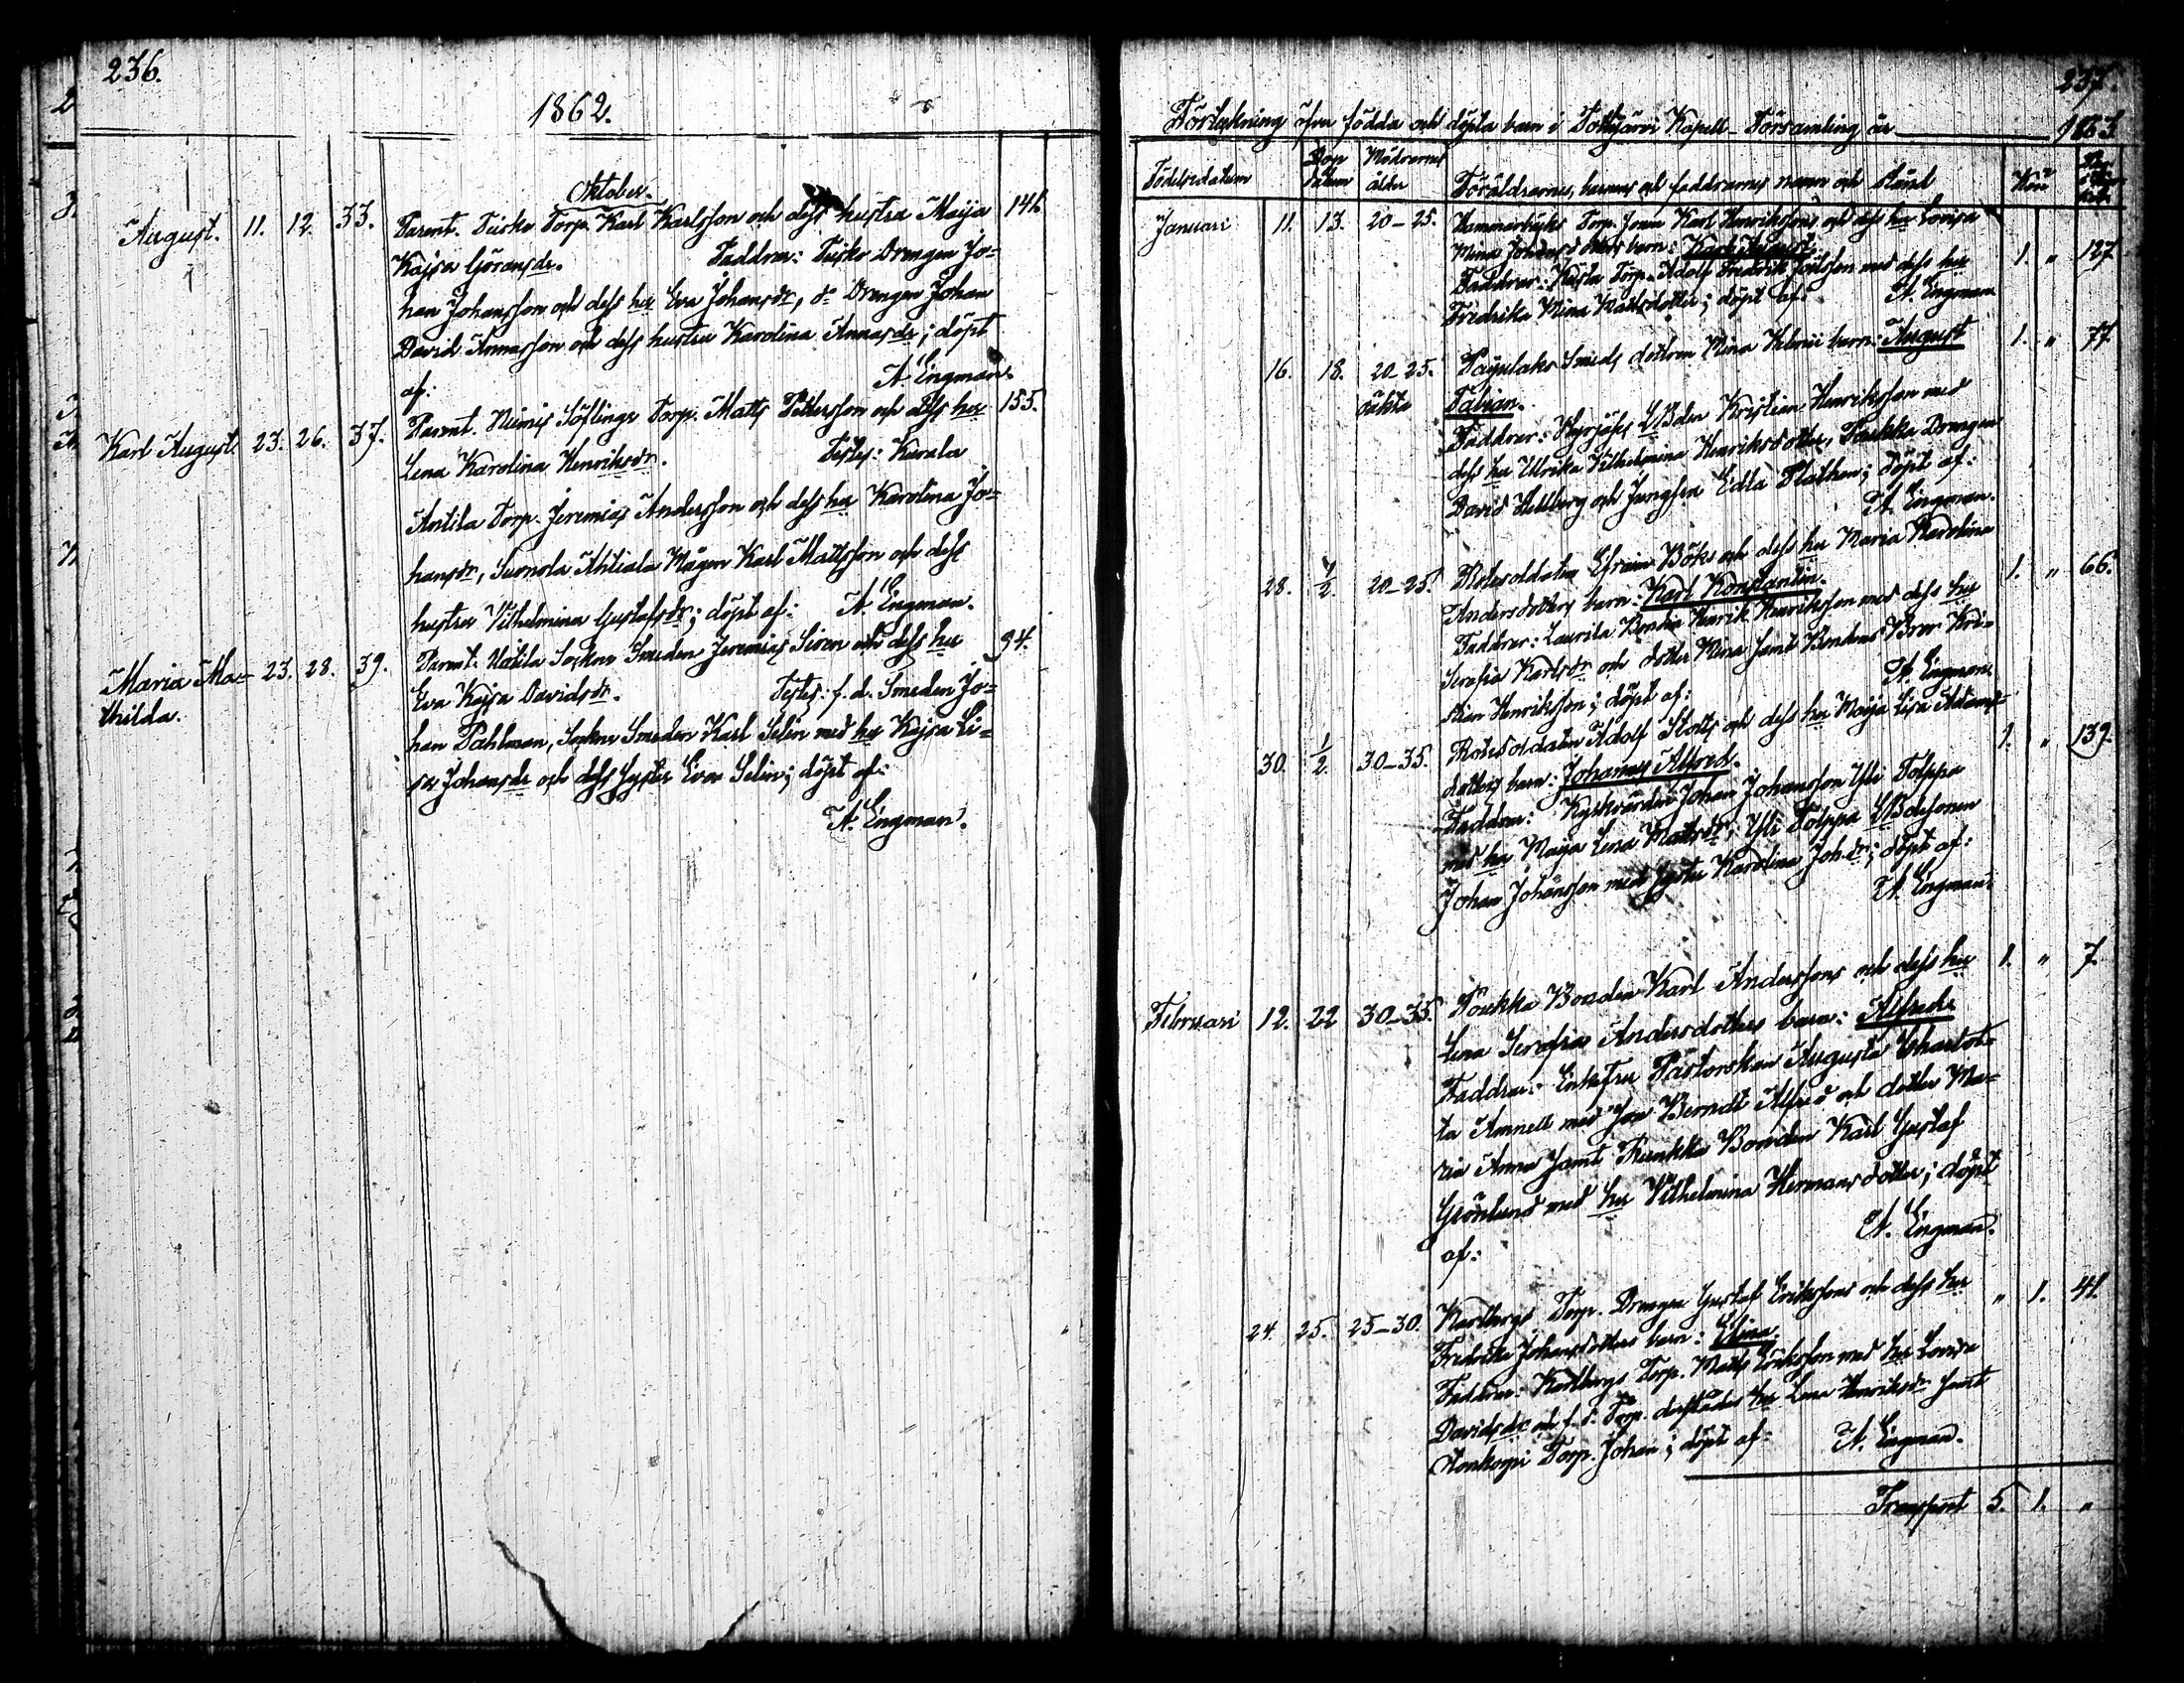 236.
1862.
Oktober.
August. 11. 12. 33. Parent. Torp. Karl Karlsson och dess hustru Maija 141.
Kajsa Göransdr. Faddrar: Drengen Jo-
han Johansson och dess hu Eva Johansdr, do Drengen Johan
David Annasson och dess hustru Karolina Annasdr; döpt
af: A. Engman.
Karl August. 23. 26. 37. Parent. Niemis Torp. Matts Pettersson och dess hu 155.
Lena Karolina Henriksdr. Testes: Karola
Antila Torp. Jeremias Andersson och dess hu Karolina Jo-
hansdr, Suonola Ahtiala Mågen Karl Mattsson och dess
hustru Vilhelmina Gustafsdr; döpt af: A. Engman.
Maria Ma- 23. 28. 39. Parent. Sockne Smeden Jeremias Siren och dess hu 94.
thilda.
Eva Kajsa Davidsdr. Testes: f.d. Smeden Jo-
han Dahlman, Sockne Smeden Karl Selin med hu Kajsa Li-
sa Johansdr och dess syster Eva Selin; döpt af:
A. Engman.
237.
Förteckning öfver födda och döpta barn i Kapell-Församling år 1863.
Födelsedatum Dop datum Mödrarnes ålder Föräldrarnes, barnens och faddrarnes namn och stånd Kön
Januari 11. 13. 20-25. Torp. Karl Henrikssons och dess hu Lovisa
Mina barn: Karl August. 1. " 127
Faddrar: Torp. Adolf Fredrik med dess hu
Fredrika Mina Mattsdotter; döpt af: A. Engman.
16. 18. 20-25. Smeds dottren Mina barn: August 1. " 77.
oäkta Fabian.
Faddrar: Kristian Henriksson med
dess hu Ulrika Vilhelmina Henriksdotter, Drengen
David Hellberg och Jungfru Edla; döpt af:
A. Engman.
28. 7/2. 20-25. Rotesoldaten Efraim Böks och dess hu Maria Karolina
Andersdotters barn: Karl Konstantin. 1. " 66.
Faddrar: Laurila Bonden Henrik Henriksson med dess hu
Serafia Karlsdr och dotter Mina samt Bondens Bror Kri-
stian Henriksson; döpt af: A. Engman.
30. 1/2. 30-35. Rotesoldaten Adolf och dess hu Maija Lisa Adams-
dotters barn: Johannes Alfred. 1. " 139.
Faddrar: Kyrkvärden Johan Johansson Yli Tolppa
med hu Maija Lena Mattsdr; Yli Tolppa
Johan Johansson med syster Karolina Joh.dr; döpt af:
A. Engman.
Februari 12. 22 30-35. Bonden Karl Anderssons och dess hu 1. " 7.
Lena Serafia Andersdotters barn: Alfred.
Faddrar: Enkefru Pastorskan Augusta Charlot-
ta Annell med son Berndt Alfred och dotter Ma-
ria Anna samt Bonden Karl Gustaf
Grönlund med hu Vilhelmina Hermansdotter; döpt
af: A. Engman.
24. 25. 25-30. Karlbergs Torp. Drengen Gustaf Erikssons och dess hu " 1. 41.
Fredrika Johansdotters barn: Elina.
Faddrar: Karlbergs Torp. Matts Eriksson med hu Lovisa
Davidsdr och f.d. Torp. derstädes hu Lena Henriksdr samt
Torp. Johan; döpt af: A. Engman.
Transport 5. 1. "